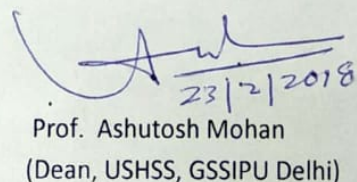 23/2/2018
Prof. Ashutosh Mohan
(Dean, USHSS, GSSIPU Delhi)